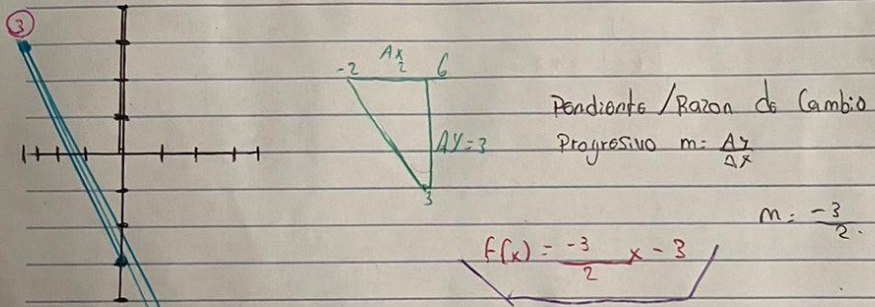 3
-2 Δx 2 6
ΔY=3
3
Pendiente / Razon de Cambio
Progresivo m= Δy/Δx
m= -3/2.
f(x) = -3/2 x - 3